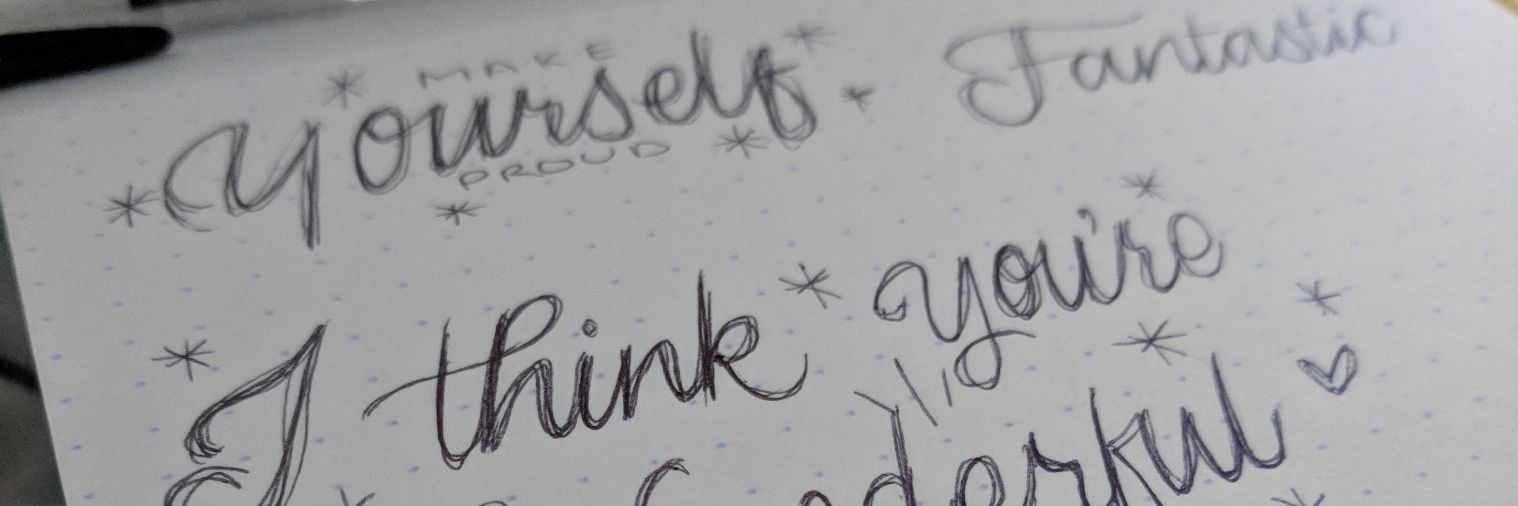 MAKE
Yourself
PROUD
Fantastic
I think you're